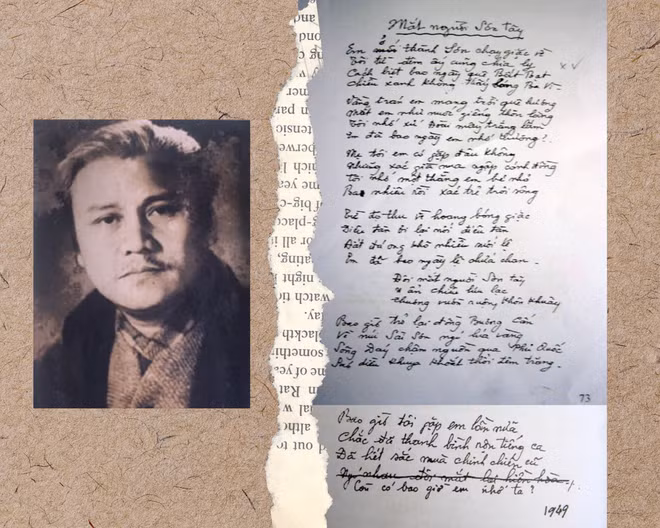 Mắt người Sơn Tây
Em ở thành Sơn chạy giặc về
Tôi từ đêm ấy cũng chia ly
Cách biệt bao ngày quê Bất Bạt
Chiều xanh không thấy bóng Ba Vì
Vầng trán em mang trời quê hương
Mắt em như nước giếng thôn làng
Tôi nhớ xứ Đoài mây trắng lắm
Em đã bao ngày em nhớ thương?
Mẹ tôi em có gặp đâu không
Những xác già nua ngập cánh đồng
Tôi nhớ một thằng em bé nhỏ
Bao nhiêu rồi xác trẻ trôi sông
Từ độ thu về hoang bóng giặc
Điêu tàn ôi lại nối điêu tàn
Đất đá ong khô nhiều suối lệ
Em đã bao ngày lệ chứa chan
Đôi mắt người Sơn Tây
U ẩn chiều lưu lạc
Thương vườn ruộng khôn khuây
Bao giờ trở lại đồng Bương Cấn
Về núi Sài Sơn ngó lúa vàng
Sông Đáy chậm nguồn qua Phủ Quốc
Sáo diều khuya khoắt thổi đêm trăng
73
Bao giờ tôi gặp em lần nữa
Chắc đã thanh bình rộn tiếng ca
Đã hết sắc mùa chinh chiến cũ
Còn có bao giờ em nhớ ta?
1949